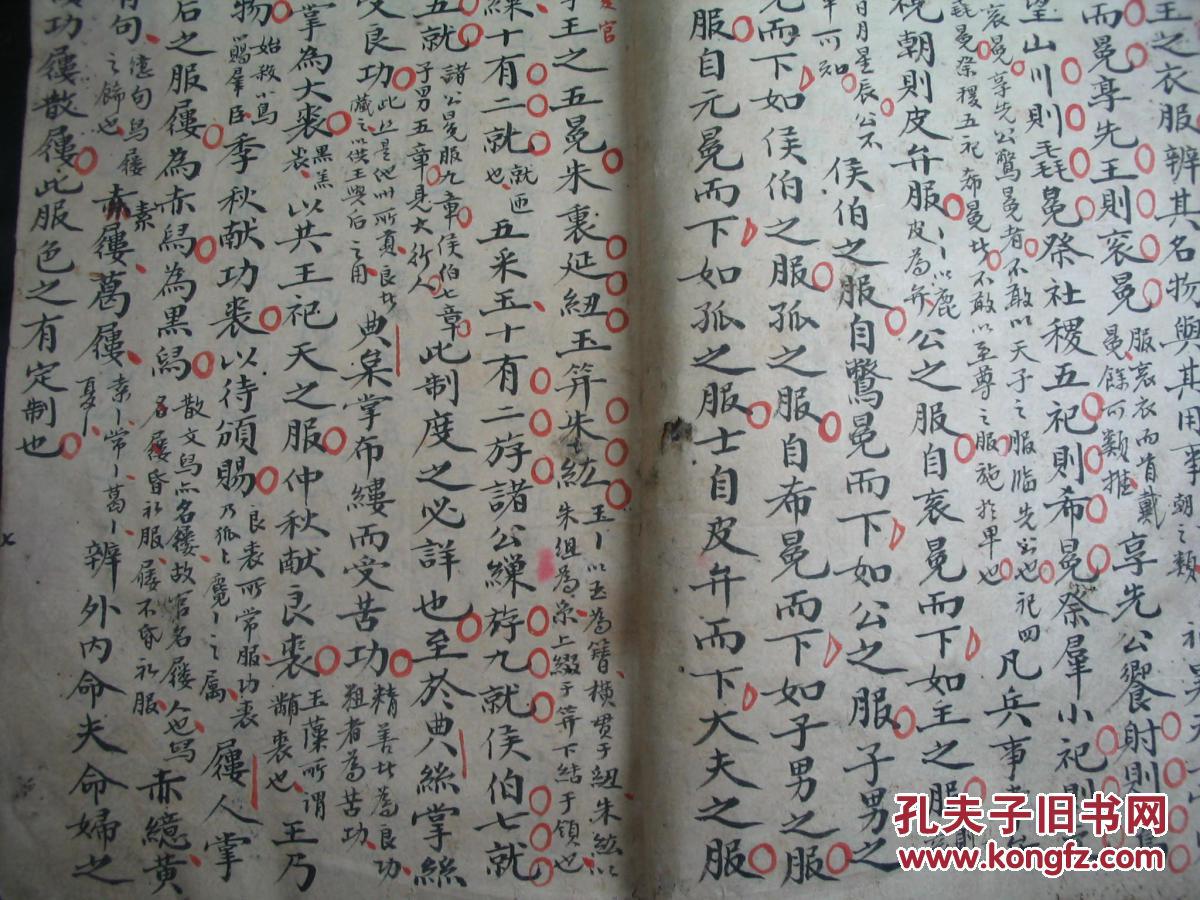 王之衣服辨其名物與其用事朝之類
服袞衣而首戴
冕餘可類推
而冕享先王則袞冕 享先公饗射則
望山川則毳冕祭社稷五祀則希冕祭羣小祀則
袞冕享先公鷩冕者不敢以天子之服臨先公也祀四
毳冕祭稷五祀希冕此不敢以至尊之服施於卑也
凡兵事
視朝則皮弁服 公之服自袞冕而下如王之服
皮為弁
以鹿
日月星辰公不
可知
侯伯之服自鷩冕而下如公之服子男之
冕而下如侯伯之服孤之服自希冕而下如子男之服
服自元冕而下如孤之服士自皮弁而下大夫之服
官
王之五冕朱裏延紐玉笄朱紘
玉丨以玉為簪橫貫于紐朱紘以
朱組為系上綴于笄下結于領也
繅十有二就 五采玉十有二斿諸公繅斿九就侯伯七就
就匝
也
五就 此制度之必詳也至於典絲掌絲
諸公冕服九章侯伯七章
子男五章見大行人
受良功 典枲掌布縷而受苦功
藏之以供王與后之用
精善此為良功
粗者為苦功
掌為大裘 以共王祀天之服仲秋献良裘 王乃
黑羔
裘
玉藻所謂
黼裘也
物 季秋献功裘以待頒賜 屨人掌
始殺小鳥
以賜羣臣
良裘所常服功裘
乃孤丨麑丨之屬
后之服屨為赤舄為黑舄 赤繶黃
散文舄亦名屨故官名屨人也舄
名屨昏礼服屨不昏礼服
有句 素 赤屨葛屨 辨外内命夫命婦之
繶句舄屨
之飾也
素丨常丨葛丨
夏丨
功屨散屨此服色之有定制也
七
孔夫子旧书网
www.kongfz.com